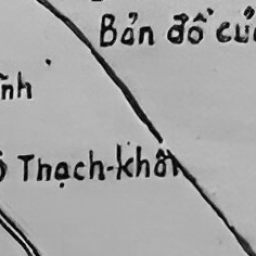 Bản đồ củ
ĩnh
Thạch-khôi